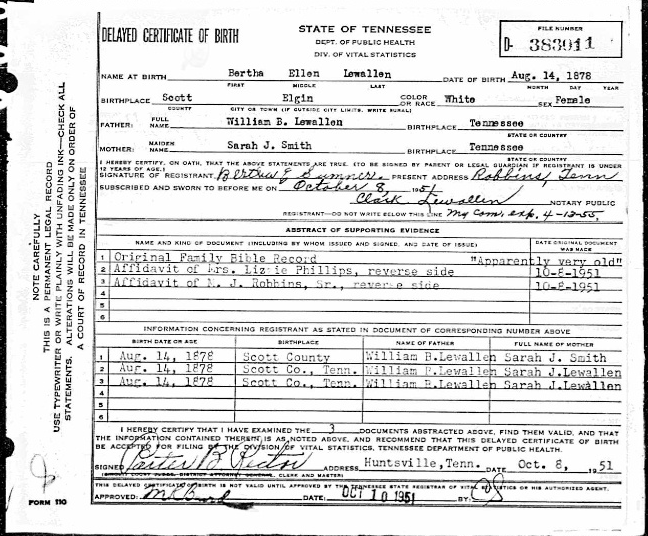 DELAYED CERTIFICATE OF BIRTH
STATE OF TENNESSEE
DEPT. OF PUBLIC HEALTH
DIV. OF VITAL STATISTICS
FILE NUMBER
D- 383011
NAME AT BIRTH Bertha Ellen Lewallen DATE OF BIRTH Aug. 14, 1878
FIRST MIDDLE LAST MONTH DAY YEAR
BIRTHPLACE Scott Elgin COLOR OR RACE White SEX Female
COUNTY CITY OR TOWN (IF OUTSIDE CITY LIMITS, WRITE RURAL)
FATHER: FULL NAME William B. Lewallen BIRTHPLACE Tennessee
STATE OR COUNTRY
MOTHER: MAIDEN NAME Sarah J. Smith BIRTHPLACE Tennessee
STATE OR COUNTRY
I HEREBY CERTIFY, ON OATH, THAT THE ABOVE STATEMENTS ARE TRUE. (TO BE SIGNED BY PARENT OR LEGAL GUARDIAN IF REGISTRANT IS UNDER
12 YEARS OF AGE.)
SIGNATURE OF REGISTRANT Bertha E Sumner PRESENT ADDRESS Robbins, Tenn
SUBSCRIBED AND SWORN TO BEFORE ME ON October 8, 1951
Clark Lewallen NOTARY PUBLIC
REGISTRANT—DO NOT WRITE BELOW THIS LINE My Com. exp. 4-13-55.
ABSTRACT OF SUPPORTING EVIDENCE
NAME AND KIND OF DOCUMENT (INCLUDING BY WHOM ISSUED AND SIGNED, AND DATE OF ISSUE) DATE ORIGINAL DOCUMENT WAS MADE
1 Original Family Bible Record "Apparently very old"
2 Affidavit of Mrs. Lizzie Phillips, reverse side 10-8-1951
3 Affidavit of J. Robbins, Sr., reverse side 10-8-1951
4
5
6
INFORMATION CONCERNING REGISTRANT AS STATED IN DOCUMENT OF CORRESPONDING NUMBER ABOVE
BIRTH DATE OR AGE BIRTHPLACE NAME OF FATHER FULL NAME OF MOTHER
1 Aug. 14, 1878 Scott County William B.Lewallen Sarah J. Smith
2 Aug. 14, 1878 Scott Co., Tenn. William B.Lewallen Sarah J.Lewallen
3 Aug. 14, 1878 Scott Co., Tenn. William B.Lewallen Sarah J.Lewallen
4
5
6
I HEREBY CERTIFY THAT I HAVE EXAMINED THE 3 DOCUMENTS ABSTRACTED ABOVE, FIND THEM VALID, AND THAT
THE INFORMATION CONTAINED THEREIN IS AS NOTED ABOVE, AND RECOMMEND THAT THIS DELAYED CERTIFICATE OF BIRTH
BE ACCEPTED FOR FILING BY THE DIVISION OF VITAL STATISTICS, TENNESSEE DEPARTMENT OF PUBLIC HEALTH.
SIGNED B Rector ADDRESS Huntsville, Tenn. DATE Oct. 8, 1951
CLERK AND MASTER)
THIS DELAYED CERTIFICATE OF BIRTH IS NOT VALID UNTIL APPROVED BY THE TENNESSEE STATE REGISTRAR OF VITAL STATISTICS OR HIS AUTHORIZED AGENT.
APPROVED: DATE: OCT 10 1951 BY:
FORM 110
NOTE CAREFULLY
THIS IS A PERMANENT LEGAL RECORD
USE TYPEWRITER OR WRITE PLAINLY WITH UNFADING INK—CHECK ALL
STATEMENTS. ALTERATIONS WILL BE MADE ONLY ON ORDER OF
A COURT OF RECORD IN TENNESSEE